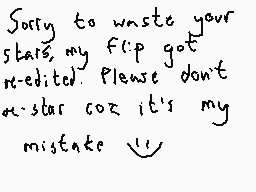 Sorry to waste your
stars, my flip got
re-edited. Please don't
re-star coz it's my
mistake